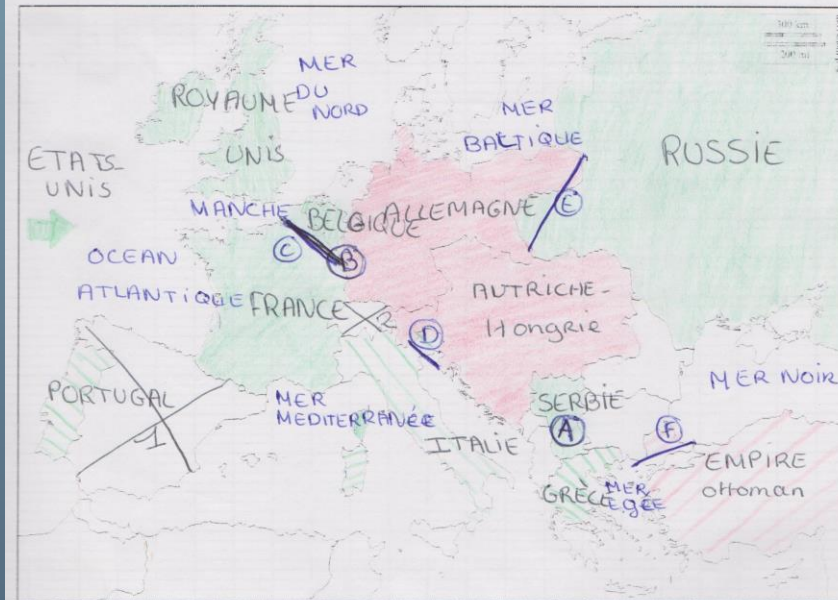 100 km
200 mi
MER
DU
NORD
ROYAUME
UNIS
MER
BALTIQUE
RUSSIE
ETATS-
UNIS
MANCHE
BELGIQUE
ALLEMAGNE
E
C
B
OCEAN
ATLANTIQUE
FRANCE
2
AUTRICHE-
Hongrie
D
PORTUGAL
1
MER
MEDITERRANÉE
ITALIE
SERBIE
A
MER NOIR
F
GRÈCE
MER
EGÉE
EMPIRE
Ottoman